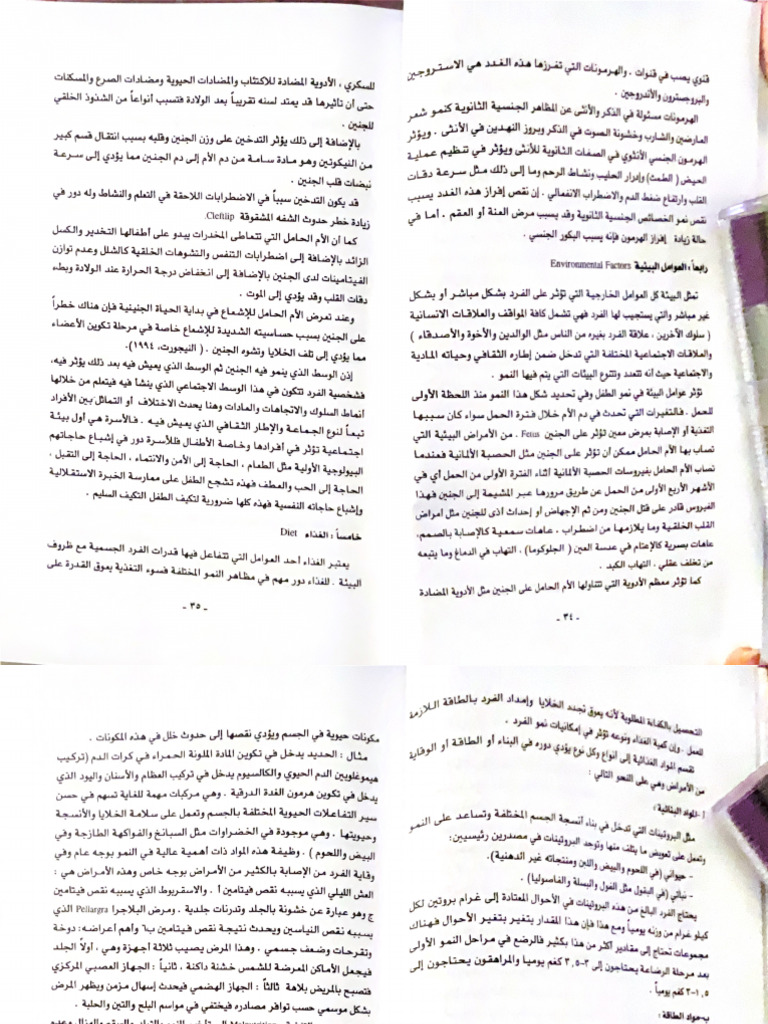 قنوي يصب في قنوات . والهرمونات التي تفرزها هذه الغدد هي الاستروجين
والبروجسترون والأندروجين .
الهرمونات مسئولة في الذكر والأنثى عن المظاهر الجنسية الثانوية كنمو شعر
العارضين والشارب وخشونة الصوت في الذكر وبروز النهدين في الأنثى . ويؤثر
الهرمون الجنسي الأنثوي في الصفات الثانوية للأنثى ويؤثر في تنظيم عملية
الحيض ( الطمث) وإدرار الحليب ونشاط الرحم وما إلى ذلك مثل سرعة دقات
القلب وارتفاع ضغط الدم والاضطراب الانفعالي . إن نقص إفراز هذه الغدد يسبب
نقص نمو الخصائص الجنسية الثانوية وقد يسبب مرض العنة أو العقم . أما في
حالة زيادة إفراز الهرمون فإنه يسبب البكور الجنسي .
رابعاً : العوامل البيئية Environmental Factors
تمثل البيئة كل العوامل الخارجية التي تؤثر على الفرد بشكل مباشر أو بشكل
غير مباشر والتي يستجيب لها الفرد فهي تشمل كافة المواقف والعلاقات الانسانية
( سلوك الآخرين ، علاقة الفرد بغيره من الناس مثل الوالدين والأخوة والأصدقاء )
والعلاقات الاجتماعية المختلفة التي تدخل ضمن إطاره الثقافي وحياته المادية
والاجتماعية حيث أنه تتعدد وتتنوع البيئات التي يتم فيها النمو .
تؤثر عوامل البيئة في نمو الطفل وفي تحديد شكل هذا النمو منذ اللحظة الأولى
للحمل . فالتغيرات التي تحدث في دم الأم خلال فترة الحمل سواء كان سببها
التغذية أو الإصابة بمرض معين تؤثر على الجنين Fetus . من الأمراض البيئية التي
تصاب بها الأم الحامل ممكن أن تؤثر على الجنين مثل الحصبة الألمانية فعندما
تصاب الأم الحامل بفيروسات الحصبة الألمانية أثناء الفترة الأولى من الحمل أي في
الأشهر الأربع الأولى من الحمل عن طريق مرورها عبر المشيمة إلى الجنين فهذا
الفيروس قادر على قتل الجنين ومن ثم الإجهاض أو إحداث أذى للجنين مثل امراض
القلب الخلقية وما يلازمها من اضطراب . عاهات سمعية كالإصابة بالصمم،
عاهات بصرية كالإعتام في عدسة العين ( الجلوكوما) . التهاب في الدماغ وما يتبعه
من تخلف عقلي . التهاب الكبد .
كما تؤثر معظم الأدوية التي تتناولها الأم الحامل على الجنين مثل الأدوية المضادة
- ٣٤ -
للسكري ، الأدوية المضادة للاكتئاب والمضادات الحيوية ومضادات الصرع والمسكنات
حتى أن تأثيرها قد يمتد لسنه تقريباً بعد الولادة فتسبب أنواعاً من الشذوذ الخلقي
للجنين .
بالإضافة إلى ذلك يؤثر التدخين على وزن الجنين وقلبه بسبب انتقال قسم كبير
من النيكوتين وهو مادة سامة من دم الأم إلى دم الجنين مما يؤدي إلى سرعة
نبضات قلب الجنين .
قد يكون التدخين سبباً في الاضطرابات اللاحقة في التعلم والنشاط وله دور في
زيادة خطر حدوث الشفه المشقوقة Cleftlip.
كما أن الأم الحامل التي تتعاطى المخدرات يبدو على أطفالها التخدير والكسل
الزائد بالإضافة إلى اضطرابات التنفس والتشوهات الخلقية كالشلل وعدم توازن
الفيتامينات لدى الجنين بالإضافة إلى انخفاض درجة الحرارة عند الولادة وبطء
دقات القلب وقد يؤدي إلى الموت .
وعند تعرض الأم الحامل للإشعاع في بداية الحياة الجنينية فإن هناك خطراً
على الجنين بسبب حساسيته الشديدة للإشعاع خاصة في مرحلة تكوين الأعضاء
مما يؤدي إلى تلف الخلايا وتشوه الجنين . ( النيجورت، ١٩٩٤).
إذن الوسط الذي ينمو فيه الجنين ثم الوسط الذي يعيش فيه بعد ذلك يؤثر فيه،
فشخصية الفرد تتكون في هذا الوسط الاجتماعي الذي ينشأ فيه فيتعلم من خلالها
أنماط السلوك والاتجاهات والعادات وهنا يحدث الاختلاف أو التماثل بين الأفراد
تبعاً لنوع الجماعة والإطار الثقافي الذي يعيش فيه . فالأسرة هي أول بيئة
اجتماعية تؤثر في أفرادها وخاصة الأطفال فللأسرة دور في إشباع حاجاتهم
البيولوجية الأولية مثل الطعام ، الحاجة إلى الأمن والانتماء، الحاجة إلى التقبل ،
الحاجة إلى الحب والعطف فهذه تشجع الطفل على ممارسة الخبرة الاستقلالية
وإشباع حاجاته النفسية فهذه كلها ضرورية لتكيف الطفل التكيف السليم .
خامساً : الغذاء Diet
يعتبر الغذاء أحد العوامل التي تتفاعل فيها قدرات الفرد الجسمية مع ظروف
البيئة . للغذاء دور مهم في مظاهر النمو المختلفة فسوء التغذية يعوق القدرة على
- ٣٥ -
التحصيل بالكفاية المطلوبة لأنه يعوق تجدد الخلايا وإمداد الفرد بالطاقة اللازمة
للعمل . وإن كمية الغذاء ونوعه تؤثر في إمكانيات نمو الفرد .
تقسم المواد الغذائية إلى أنواع وكل نوع يؤدي دوره في البناء أو الطاقة أو الوقاية
من الأمراض وهي على النحو التالي :
أ -المواد البنائية :
مثل البروتينات التي تدخل في بناء أنسجة الجسم المختلفة وتساعد على النمو
وتعمل على تعويض ما يتلف منها وتوجد البروتينات في مصدرين رئيسيين:
- حيواني (في اللحوم والبيض واللبن ومنتجاته غير الدهنية).
- نباتي (في البقول مثل الفول والبسلة والفاصوليا).
يحتاج الفرد البالغ من هذه البروتينات في الأحوال المعتادة إلى غرام بروتين لكل
كيلو غرام من وزنه يومياً ومع هذا فإن هذا المقدار يتغير بتغير الأحوال فهناك
مجموعات تحتاج إلى مقادير أكثر من هذا بكثير فالرضع في مراحل النمو الأولى
بعد مرحلة الرضاعة يحتاجون إلى ٢-٣,٥ كغم يومياً والمراهقون يحتاجون إلى
١,٥-٢ كغم يومياً .
ب-مواد الطاقة :
مكونات حيوية في الجسم ويؤدي نقصها إلى حدوث خلل في هذه المكونات .
مثال : الحديد يدخل في تكوين المادة الملونة الحمراء في كرات الدم (تركيب
هيموغلوبين الدم الحيوي والكالسيوم يدخل في تركيب العظام والأسنان واليود الذي
يدخل في تكوين هرمون الغدة الدرقية . وهي مركبات مهمة للغاية تسهم في حسن
سير التفاعلات الحيوية المختلفة بالجسم وتعمل على سلامة الخلايا والأنسجة
وحيويتها . وهي موجودة في الخضراوات مثل السبانخ والفواكهة الطازجة وفي
البيض واللحوم ) . وظيفة هذه المواد ذات أهمية عالية في النمو بوجه عام وفي
وقاية الفرد من الإصابة بالكثير من الأمراض بوجه خاص وهذه الأمراض هي :
العش الليلي الذي يسببه نقص فيتامين أ . والاسقربوط الذي يسببه نقص فيتامين
ج وهو عبارة عن خشونة بالجلد وتدرنات جلدية . ومرض البلاجرا Pellargra الذي
يسببه نقص النياسين ويحدث نتيجة نقص فيتامين ب٢ وأهم أعراضه: دوخة
وتقرحات وضعف جسمي . وهذا المرض يصيب ثلاثة أجهزة وهي . أولاً الجلد
فيجعل الأماكن المعرضة للشمس خشنة داكنة ، ثانياً : الجهاز العصبي المركزي
فتصبح بالمريض بلاهة ثالثاً : الجهاز الهضمي فيحدث إسهال مزمن ويظهر المرض
بشكل موسمي حسب توافر مصادره فيختفي في مواسم البلح والتين والحلبة .